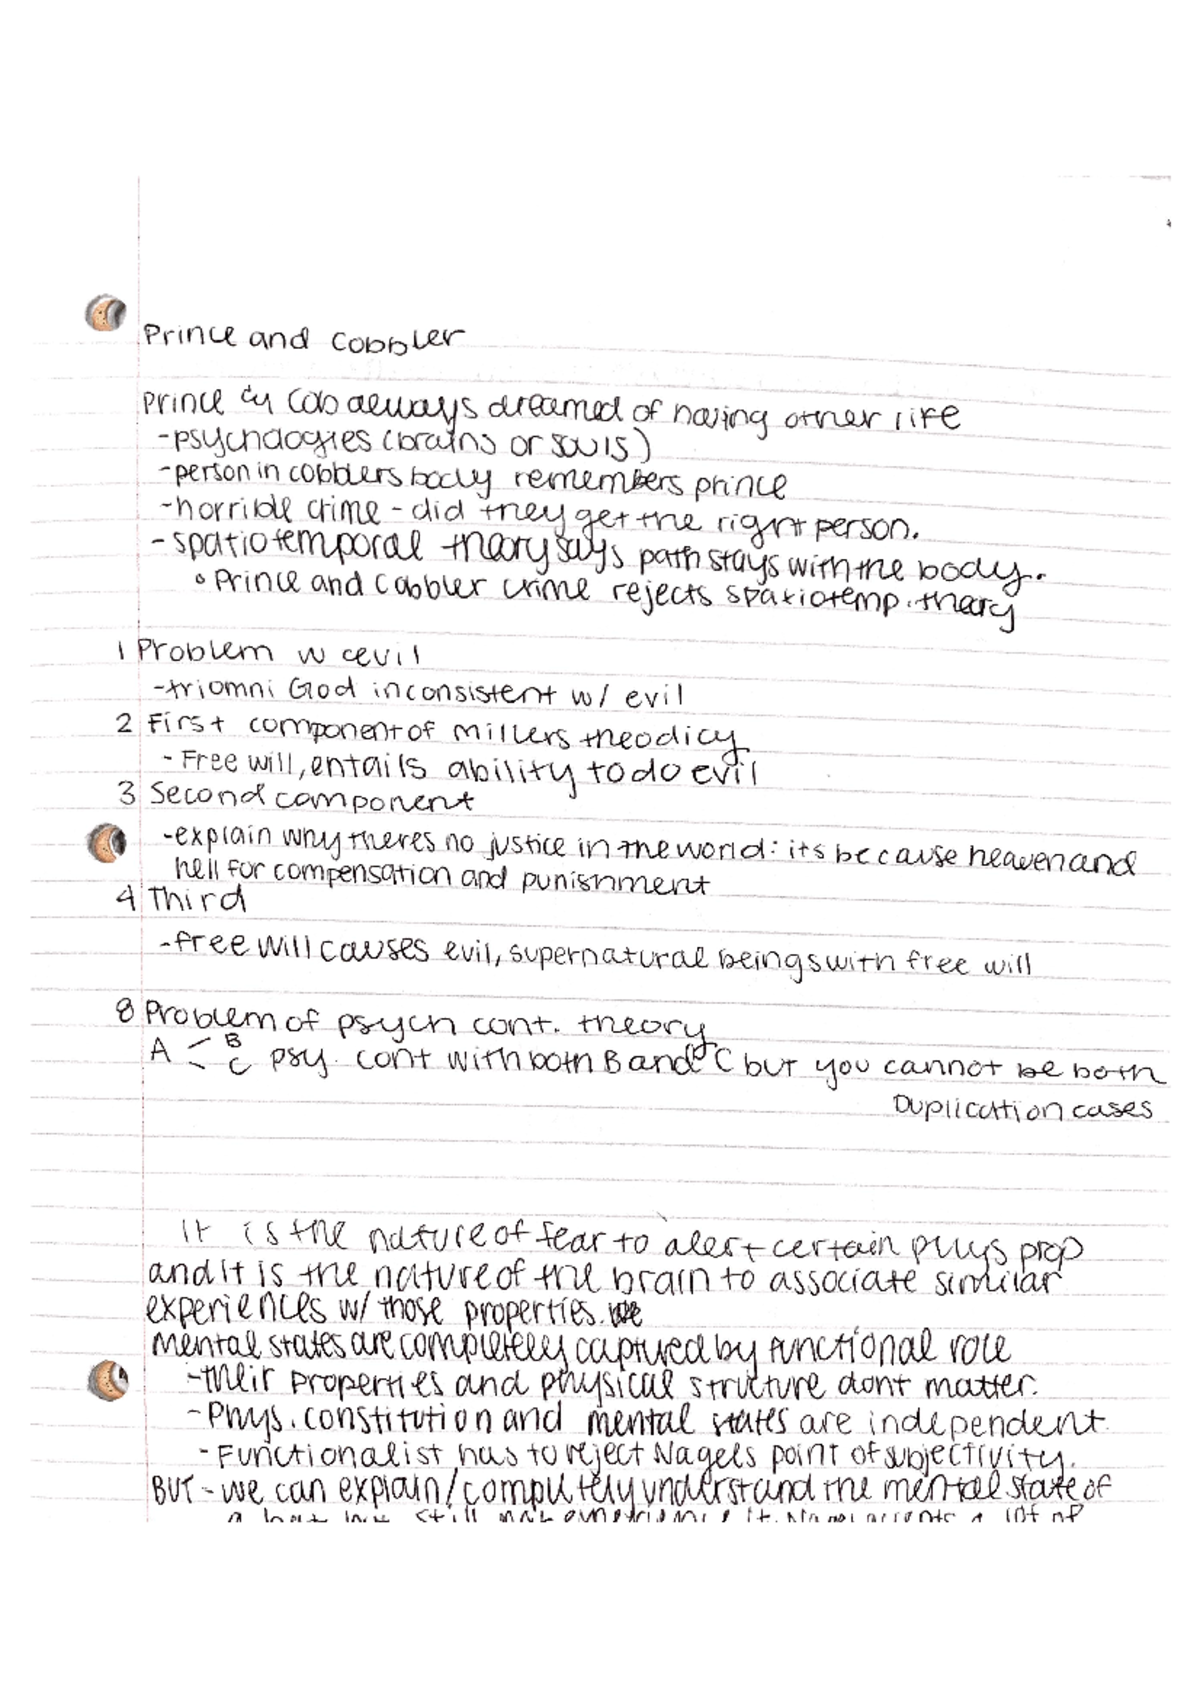 Prince and Cobbler
Prince & Cob always dreamed of having other life
-psychologies (brains or souls)
-person in cobblers body remembers prince
-horrible crime - did they get the right person.
- spatiotemporal theory says path stays with the body.
° Prince and Cobbler crime rejects spatiotemp. theory
1 Problem w evil
-triomni God inconsistent w/ evil
2 First component of Millers theodicy
- Free will, entails ability to do evil
3 Second component
-explain why theres no justice in the world: its because heaven and
hell for compensation and punishment
4 Third
-free will causes evil, supernatural beings with free will
8 Problem of psych cont. theory
A B C psy. cont with both B and C but you cannot be both
Duplication cases
It is the nature of fear to alert certain phys prop
and it is the nature of the brain to associate similar
experiences w/ those properties.
Mental states are completely captured by functional role
-their properties and physical structure dont matter.
- Phys. constitution and mental states are independent.
- Functionalist has to reject Nagels point of subjectivity.
BUT - we can explain/completely understand the mental state of